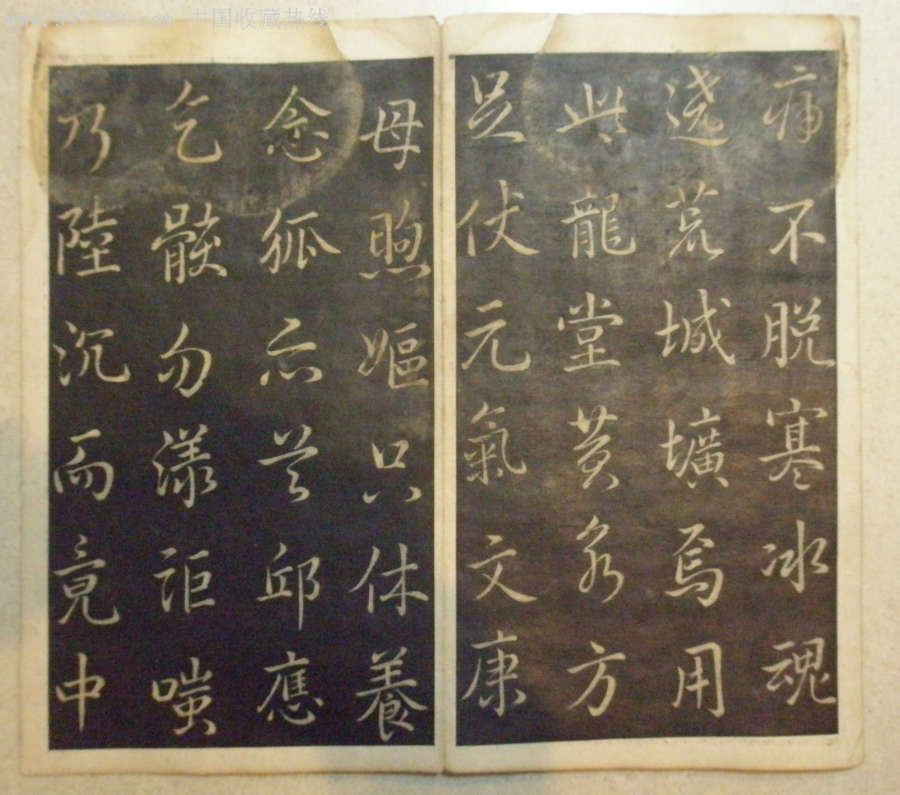 www.997788.com 中国收藏热线
痛不脱寒冰魂
遶荒城壙焉用
此龍堂黄泉方
足伏元氣文康
母煦嫗只休養
念狐亦首邱應
乞骸勿漾詎嗤
乃陸沉而竟中